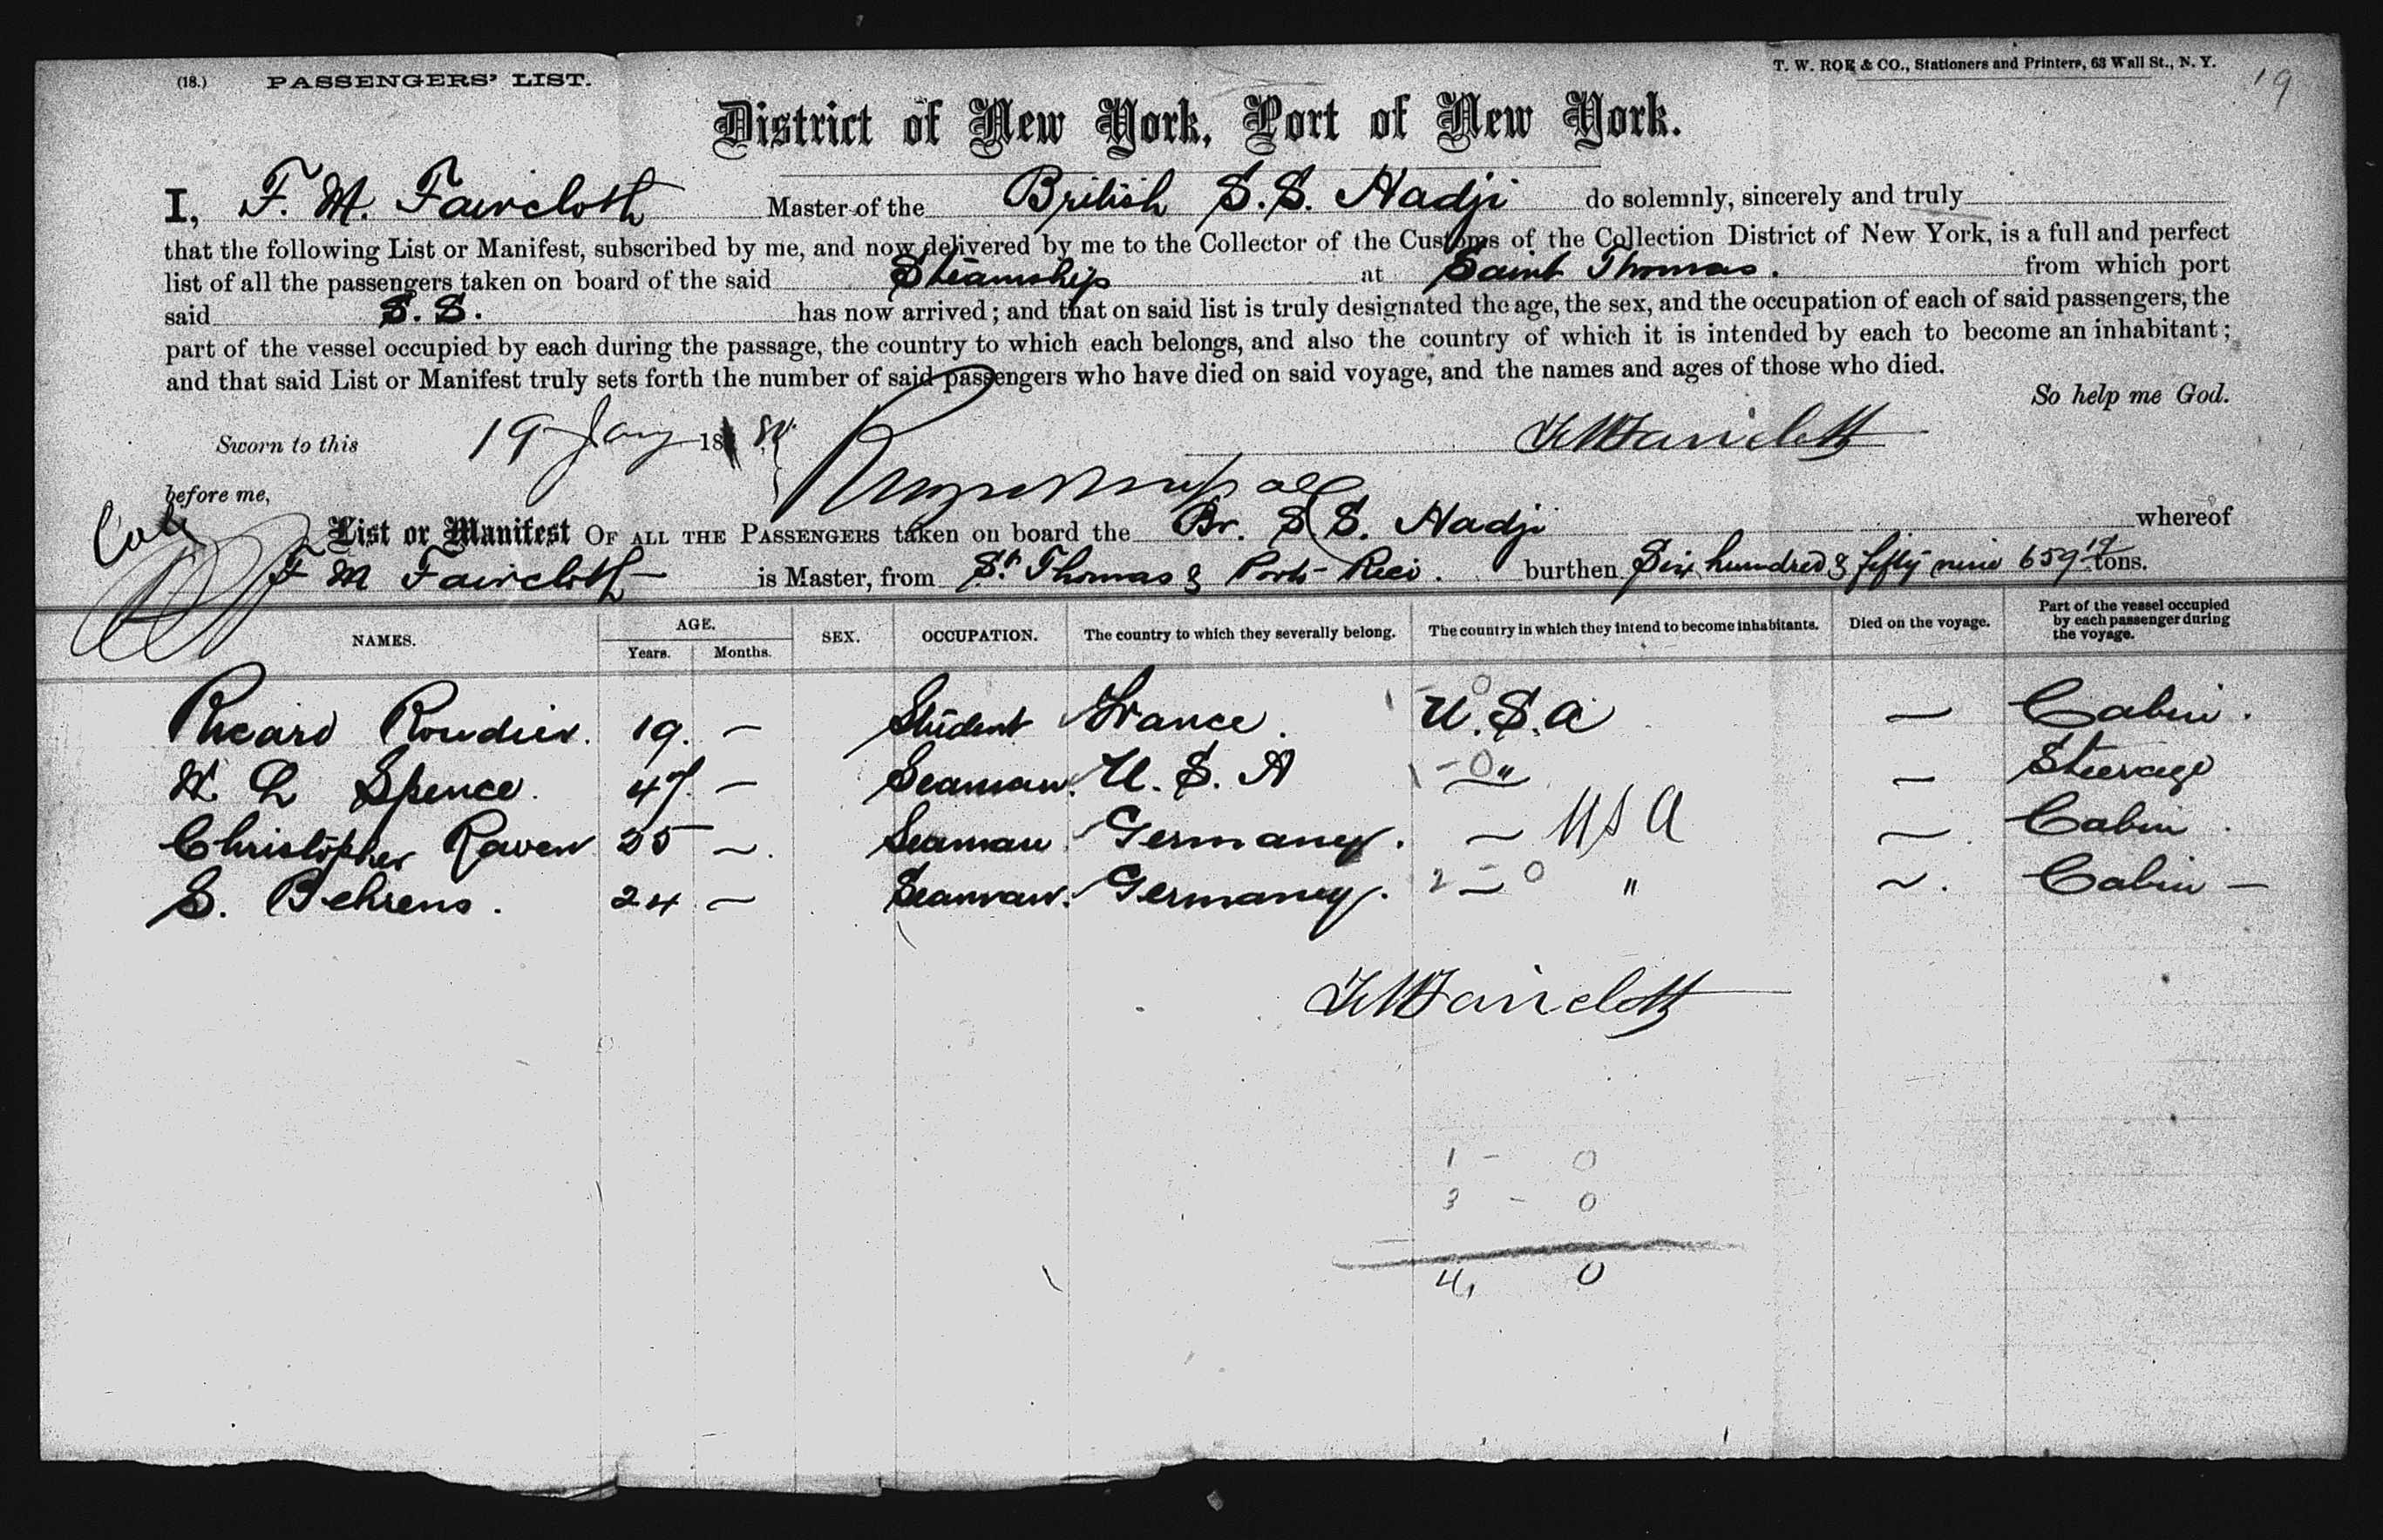 (18.) PASSENGERS' LIST.
T. W. ROE & CO., Stationers and Printers, 63 Wall St., N. Y.
19
District of New York, Port of New York.
I, F. M. Faircloth Master of the British S.S. Hadji do solemnly, sincerely and truly
that the following List or Manifest, subscribed by me, and now delivered by me to the Collector of the Customs of the Collection District of New York, is a full and perfect
list of all the passengers taken on board of the said Steamship at Saint Thomas. from which port
said S.S. has now arrived; and that on said list is truly designated the age, the sex, and the occupation of each of said passengers, the
part of the vessel occupied by each during the passage, the country to which each belongs, and also the country of which it is intended by each to become an inhabitant;
and that said List or Manifest truly sets forth the number of said passengers who have died on said voyage, and the names and ages of those who died.
So help me God.
Sworn to this 19 Jany 18
F M Faircloth
before me,
List or Manifest OF ALL THE PASSENGERS taken on board the Br. S.S. Hadji whereof
F M Faircloth is Master, from St. Thomas & Porto Rico. burthen Six hundred & fifty nine 659 tons.
NAMES. AGE. Years. Months. SEX. OCCUPATION. The country to which they severally belong. The country in which they intend to become inhabitants. Died on the voyage. Part of the vessel occupied by each passenger during the voyage.
19. — Student France. U.S.A — Cabin.
Spence. 47. — Seaman. U.S.A " — Steerage
Christopher Raven 25 — Seaman. Germany. — U S A — Cabin.
S. Behrens. 24 — Seaman. Germany. 2 — 0 " — Cabin —
F M Faircloth
1 - 0
3 - 0
4, 0